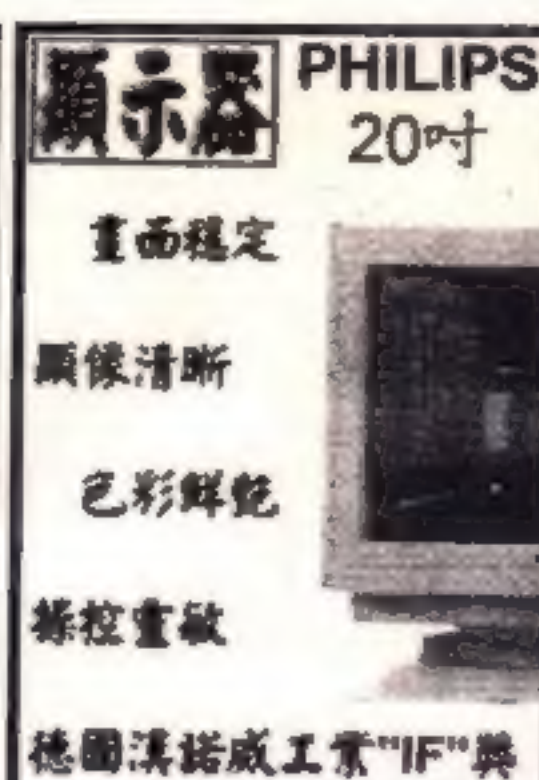 顯示器
PHILIPS
20吋
畫面穩定
顯像清晰
色彩鮮艷
操控靈敏
德國漢諾威工業"IF"獎